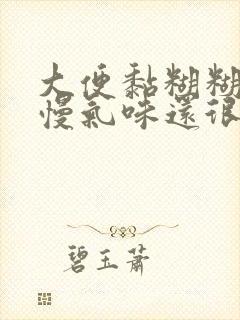 大便黏糊糊
慢氣味還很
碧玉蕭